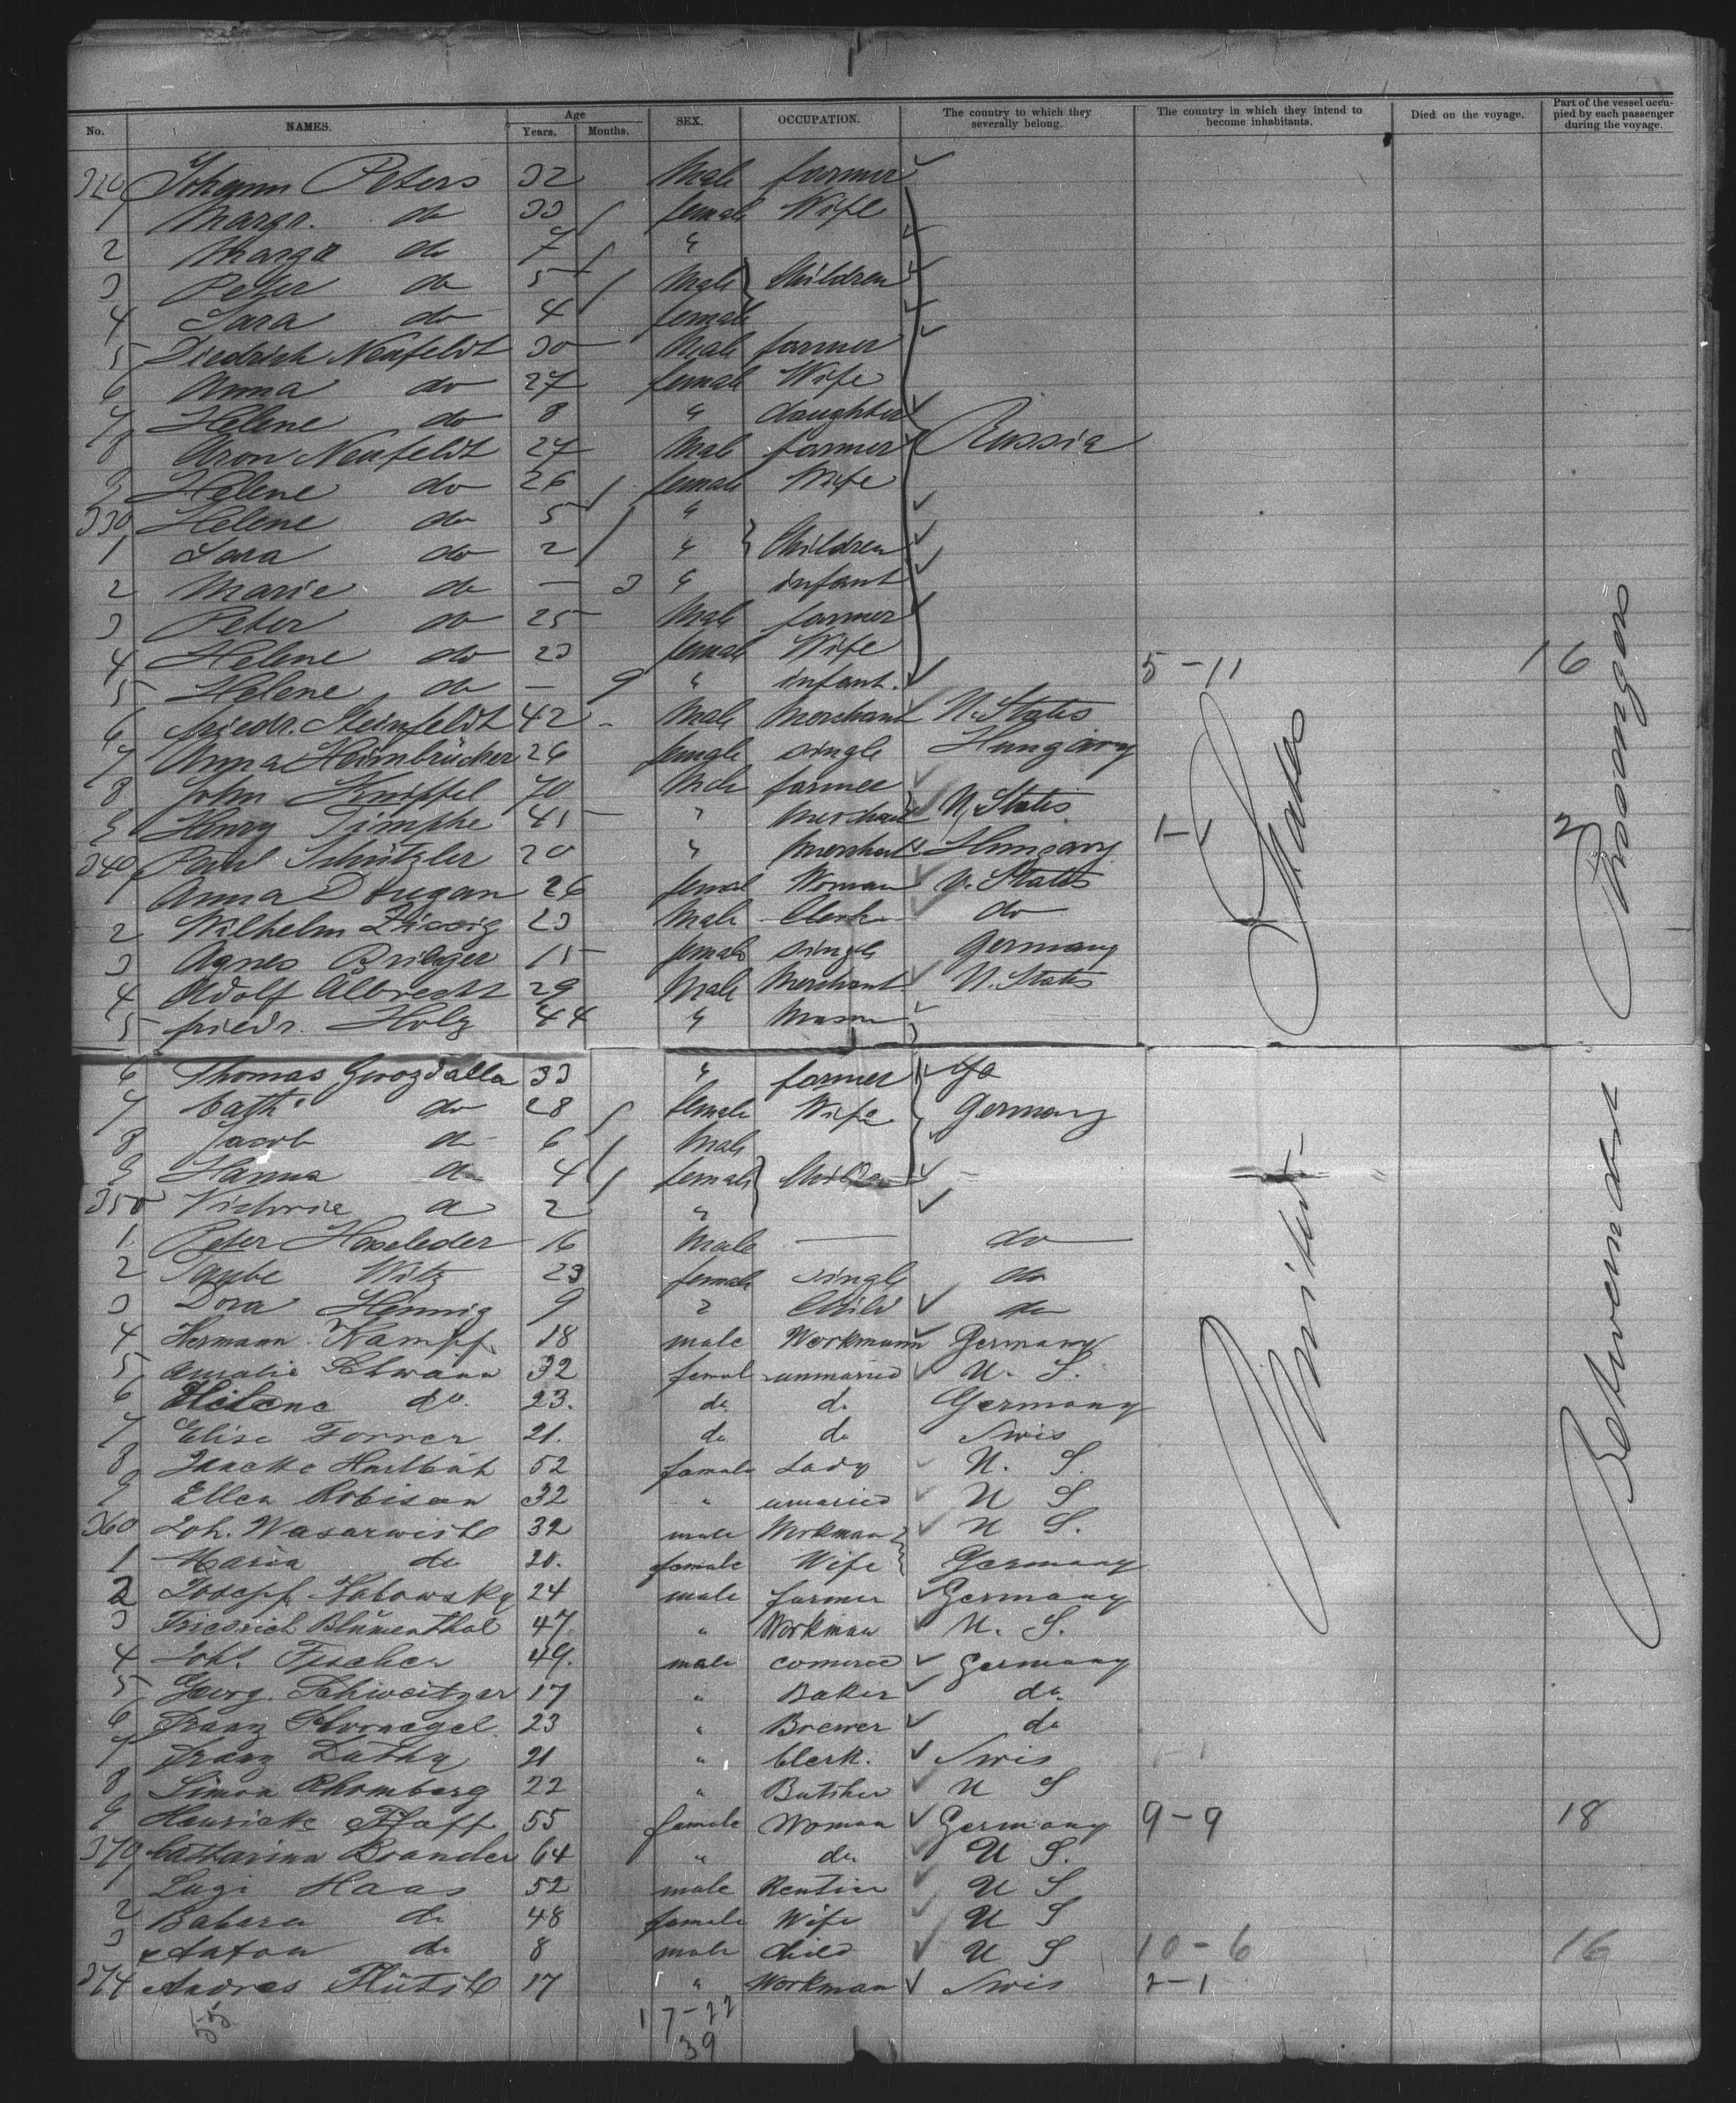 No. NAMES. Age Years. Months. SEX. OCCUPATION. The country to which they severally belong. The country in which they intend to become inhabitants. Died on the voyage. Part of the vessel occupied by each passenger during the voyage.
320 Johann Peters 32 Male farmer
1 Margr. do 33 female Wife
2 Marga do 7 "
3 Peter do 5 Male Children
4 Sara do 4 female
5 Diedrich Neufeldt 30 Male farmer
6 Anna do 27 female Wife
7 Helene do 8 " daughter
8 Aron Neufeldt 27 Male farmer Russia
9 Helene do 26 female Wife
330 Helene do 5 "
1 Sara do 2 " Children
2 Marie do — 3 " infant
3 Peter do 25 Male farmer
4 Helene do 23 female Wife 5-11 16
5 Helene do — 9 " infant.
6 friedr. Steinfeldt 42 Male Merchant U. States
7 Anna Heimbrücker 26 female single Hungary
8 John Knippel 70 Male farmer
9 Henry Timphe 41 " Merchant U. States
340 Paul Schützler 20 " Merchant Hungary
1 Anna Dougan 26 female Woman U. States
2 Wilhelm 23 Male Clerk do
3 Agnes 15 female single Germany
4 Adolf Albrecht 29 Male Merchant U. States
5 friedr. Holz 44 " Mason
6 Thomas 33 " farmer
7 Cath. do 28 female Wife Germany
8 Jacob do 6 Male
9 Hanna do 4 female Children
350 Victorie do 2 "
1 Peter Haseleder 16 Male — do
2 Taube Witz 23 female single do
3 Dora Hennig 9 " Child do
4 Hermann Kampf 18 male Workmann Germany
5 Amalie Schwann 32 female unmarried U. S.
6 Helene do. 23. do do Germany
7 Elise Forrer 21. do do Swis
8 52 female Lady U. S.
9 Ellen Robison 32 " unmaried U S
360 Joh. 32 male Workman U S.
1 Maria do 20. female Wife Germany
2 Josepf 24 male farmer Germany
3 Friedrich Blumenthal 47 " Workman U. S.
4 Joh. Fischer 49. male Germany
5 Georg. Schweitzer 17 " Baker do.
6 Franz 23 " Brewer do
7 Franz Luthy 21 " Clerk. Swis
8 Simon Rhomberg 22 " Butcher U S
9 Henriette Pfaff 55 female Woman Germany 9-9 18
370 Catharina Brander 64 " do U S.
1 Lugi Haas 52 male Rentier U S
2 Babara do 48 female Wife U S
3 Anton do 8 male child U S 10-6 16
374 Andres Flütsch 17 " Workman Swis 2-1
55 17-22
39
United States
Between deck Passengers